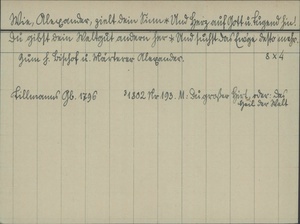 Wie, Alexander, zielt dein Sinn * Und Herz auf Gott u. Tugend hin!
Du gibst dein Weltgut andern her * Und suchst das Ewge desto mehr.
Zum h. Bischof u. Märterer Alexander. 8 x 4
Tillmanns Gb. 1796
³1802 Nr 193. M: Du großer Hirt, oder: Das
Heil der Welt